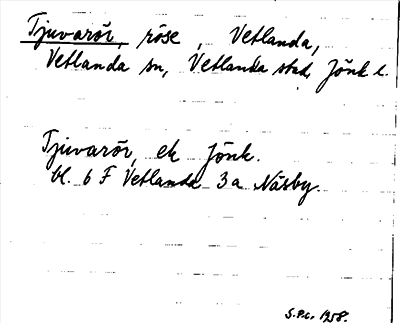 Tjuvarör, röse, Vetlanda,
Vetlanda sn, Vetlanda stad, Jönk l.
Tjuvarör, ek Jönk.
bl. 6 F Vetlanda 3a Näsby.
S.P.c. 1958.